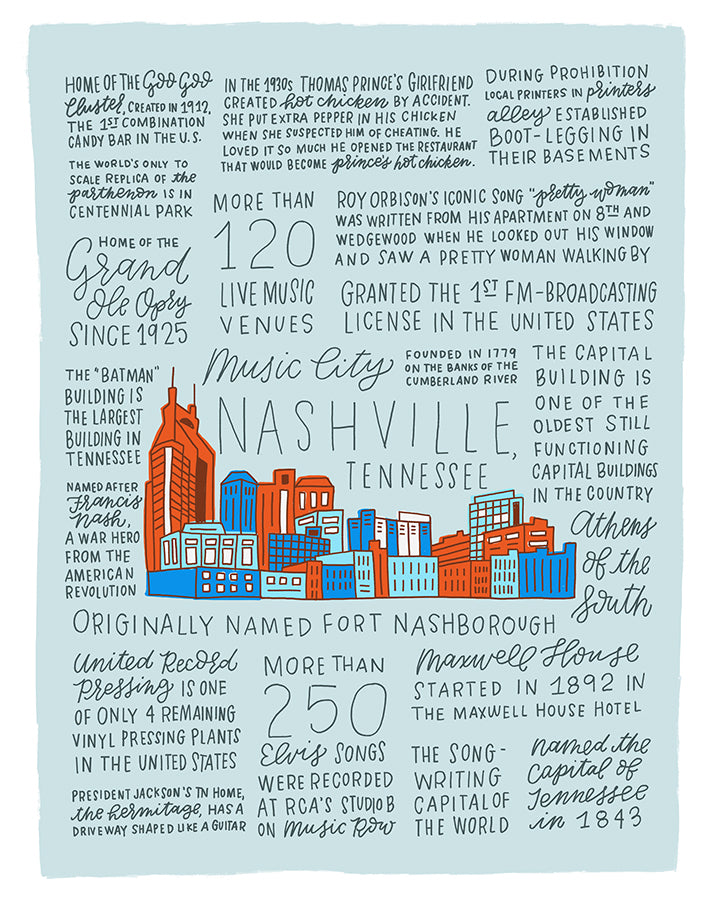 HOME OF THE Goo Goo
Cluster, CREATED IN 1912,
THE 1ST COMBINATION
CANDY BAR IN THE U.S.
IN THE 1930s THOMAS PRINCE'S GIRLFRIEND
CREATED hot chicken BY ACCIDENT.
SHE PUT EXTRA PEPPER IN HIS CHICKEN
WHEN SHE SUSPECTED HIM OF CHEATING. HE
LOVED IT SO MUCH HE OPENED THE RESTAURANT
THAT WOULD BECOME prince's hot chicken.
DURING PROHIBITION
LOCAL PRINTERS IN printers
alley ESTABLISHED
BOOT-LEGGING IN
THEIR BASEMENTS
THE WORLD'S ONLY TO
SCALE REPLICA OF the
parthenon IS IN
CENTENNIAL PARK
MORE THAN
120
LIVE MUSIC
VENUES
ROY ORBISON'S ICONIC SONG "pretty woman"
WAS WRITTEN FROM HIS APARTMENT ON 8TH AND
WEDGEWOOD WHEN HE LOOKED OUT HIS WINDOW
AND SAW A PRETTY WOMAN WALKING BY
HOME OF THE
Grand
Ole Opry
SINCE 1925
GRANTED THE 1ST FM-BROADCASTING
LICENSE IN THE UNITED STATES
Music City
FOUNDED IN 1779
ON THE BANKS OF THE
CUMBERLAND RIVER
NASHVILLE,
TENNESSEE
THE CAPITAL
BUILDING IS
ONE OF THE
OLDEST STILL
FUNCTIONING
CAPITAL BUILDINGS
IN THE COUNTRY
THE "BATMAN"
BUILDING IS
THE LARGEST
BUILDING IN
TENNESSEE
NAMED AFTER
Francis
Nash,
A WAR HERO
FROM THE
AMERICAN
REVOLUTION
Athens
of the
South
ORIGINALLY NAMED FORT NASHBOROUGH
United Record
Pressing IS ONE
OF ONLY 4 REMAINING
VINYL PRESSING PLANTS
IN THE UNITED STATES
MORE THAN
250
Elvis SONGS
WERE RECORDED
AT RCA'S STUDIO B
ON Music Row
Maxwell House
STARTED IN 1892 IN
THE MAXWELL HOUSE HOTEL
PRESIDENT JACKSON'S TN HOME,
the hermitage, HAS A
DRIVEWAY SHAPED LIKE A GUITAR
THE SONG-
WRITING
CAPITAL OF
THE WORLD
named the
Capital of
Tennessee
in 1843